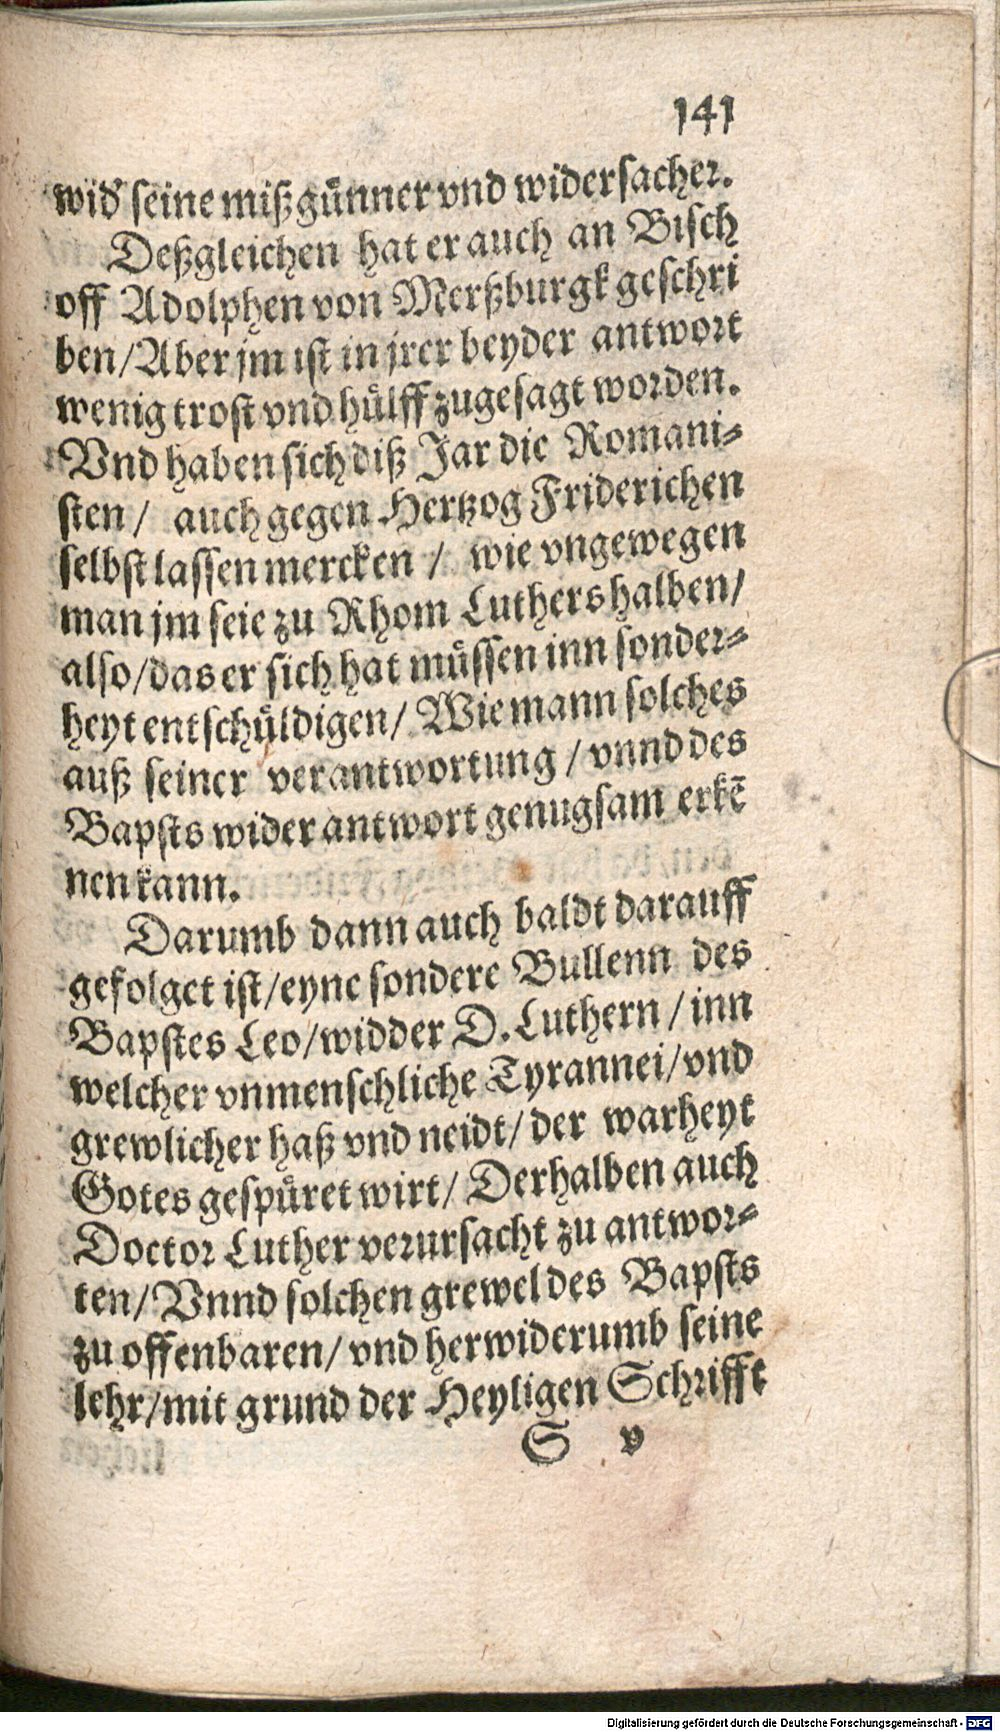 141
wid' seine mißgünner vnd widersacher.
Deßgleichen hat er auch an Bisch
off Adolphen von Merßburgk geschri
ben/Aber jm ist in jrer beyder antwort
wenig trost vnd hülff zugesagt worden.
Vnd haben sich diß Jar die Romani⸗
sten/ auch gegen Hertzog Friderichen
selbst lassen mercken / wie vngewegen
man jm seie zu Rhom Luthers halben/
also/das er sich hat müssen inn sonder⸗
heyt entschüldigen/ Wie mann solches
auß seiner verantwortung / vnnd des
Bapsts wider antwort genugsam erkẽ
nen kann.
Darumb dann auch baldt darauff
gefolget ist/eyne sondere Bullenn des
Bapstes Leo/widder D. Luthern / inn
welcher vnmenschliche Tyrannei/vnd
grewlicher haß vnd neidt/ der warheyt
Gotes gespüret wirt/ Derhalben auch
Doctor Luther verursacht zu antwor⸗
ten/ Vnnd solchen grewel des Bapsts
zu offenbaren/ vnd herwiderumb seine
lehr/mit grund der Heyligen Schrifft
S v
Digitalisierung gefördert durch die Deutsche Forschungsgemeinschaft - DFG